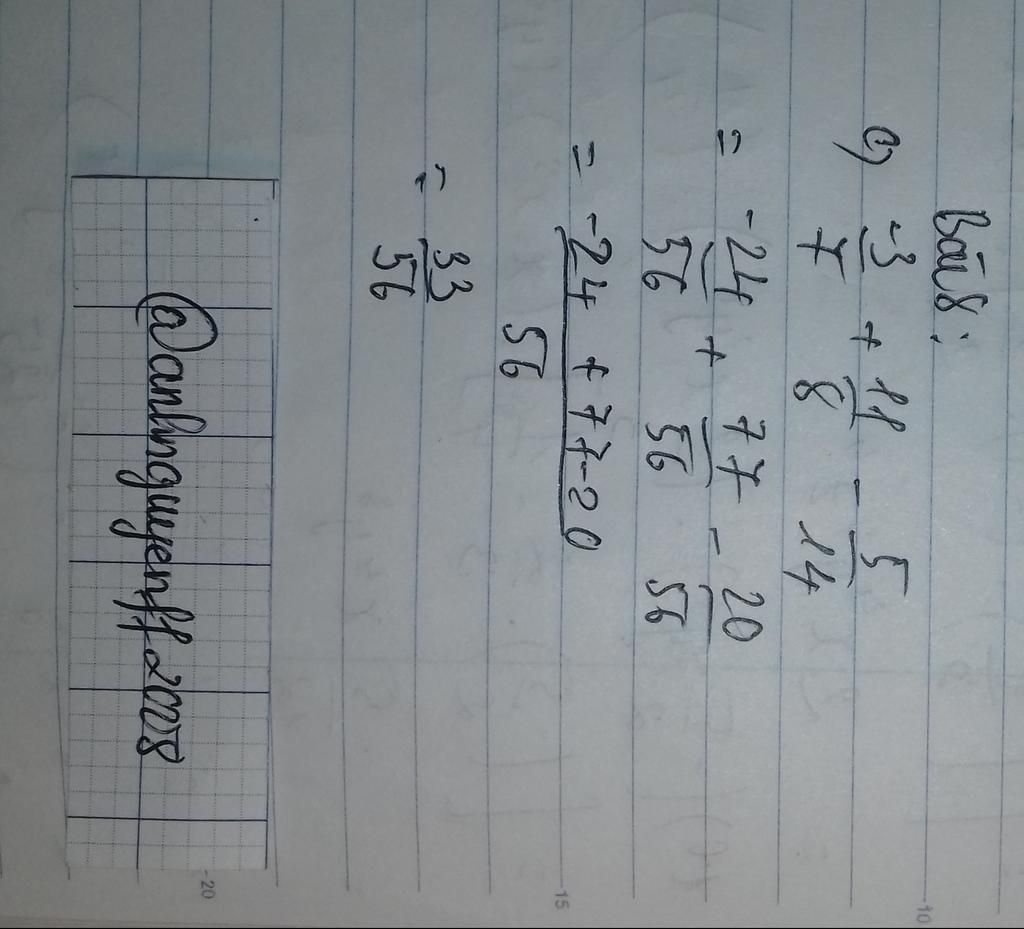 Bài 8:
c) -3/7 + 11/8 - 5/14
= -24/56 + 77/56 - 20/56
= -24 + 77-20/56
= 33/56
@anhnguyenff2008
-10
-15
-20